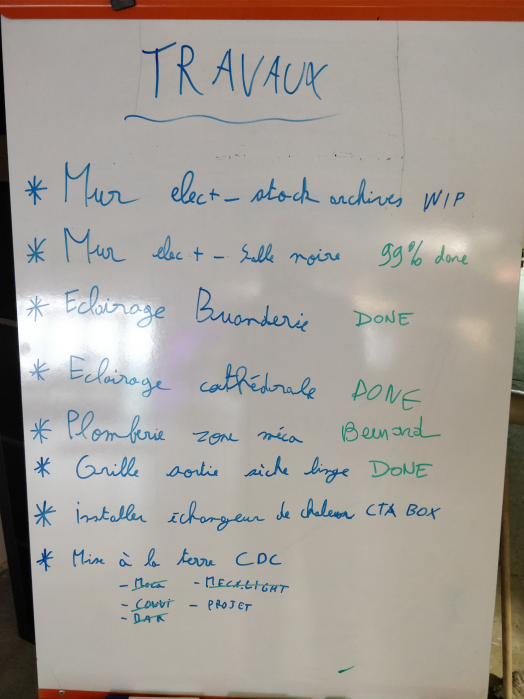 TRAVAUX
* Mur elect - stock archives WIP
* Mur elect - Salle noire 99% done
* Eclairage Buanderie DONE
* Eclairage cathédrale DONE
* Plomberie zone méca Bernard
* Grille sortie sèche linge DONE
* installer échangeur de chaleur CTA BOX
* Mise à la terre CDC
- Moca - MECA.LIGHT
- COUVI - PROJET
- BAR